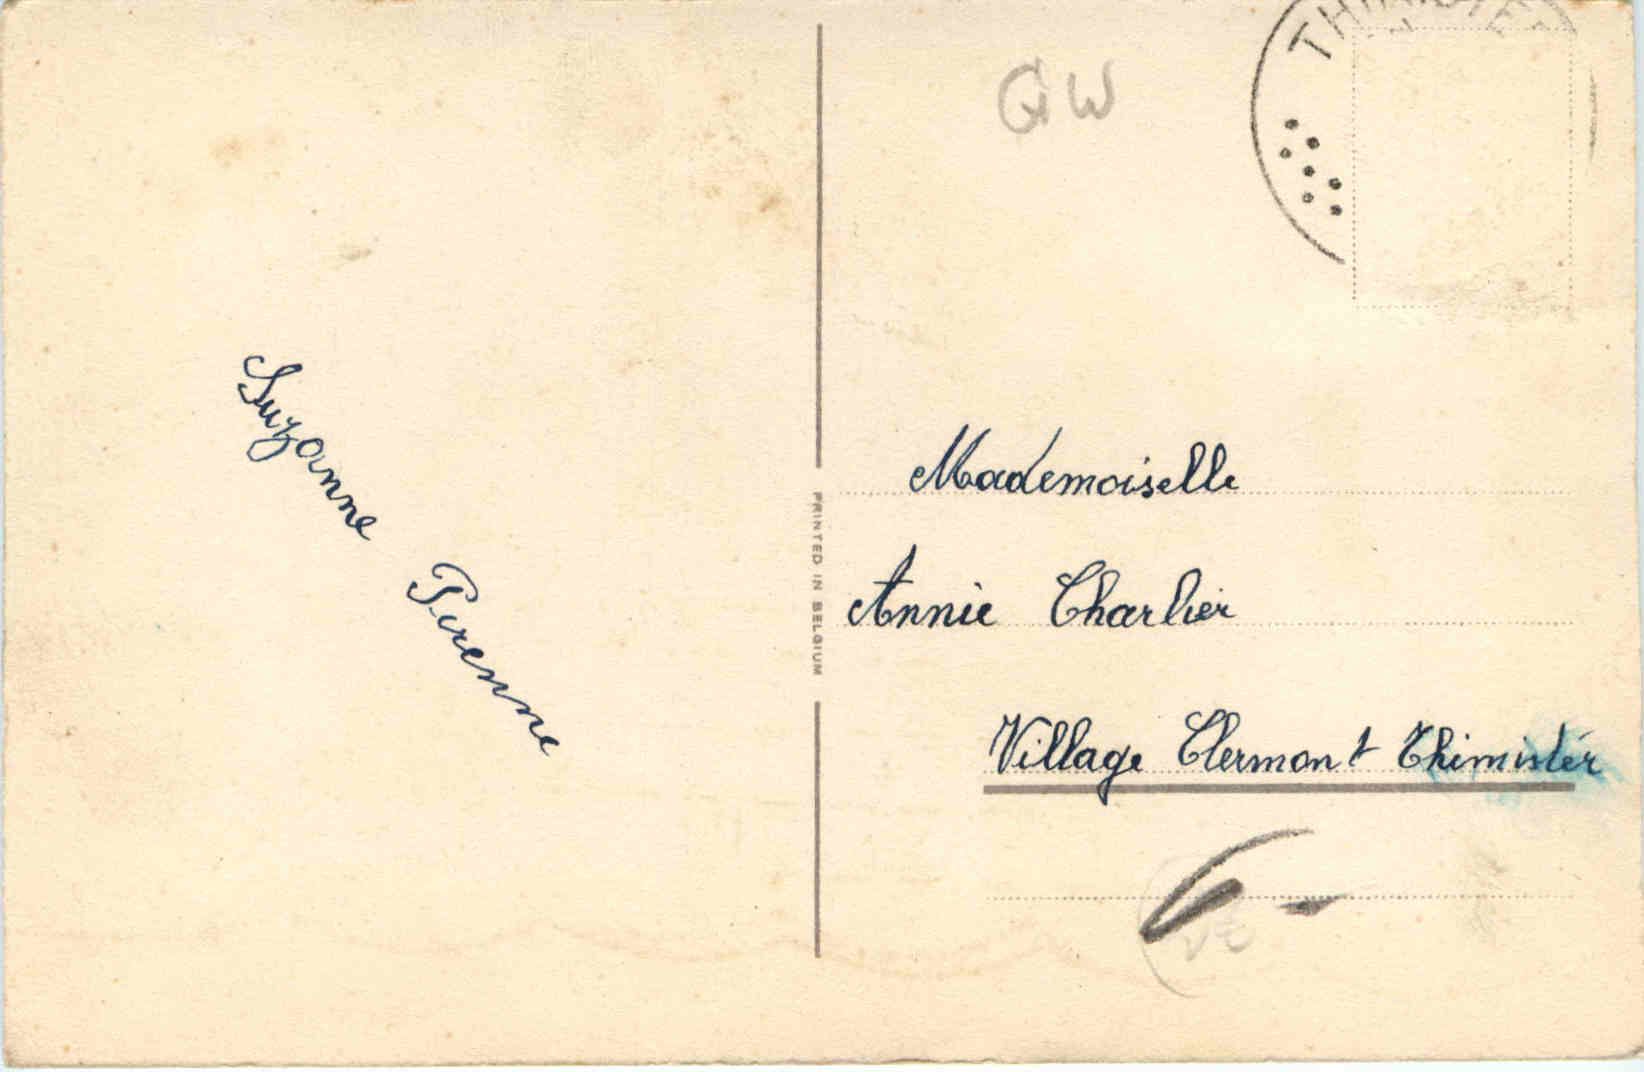 THIMISTER
GW
Suzanne Pirenne
PRINTED IN BELGIUM
Mademoiselle
Annie Charlier
Village Clermont Thimister
6 -